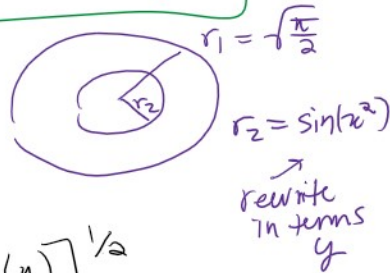 r₁ = √(π/2)
r₂
r₂ = sin(x²)
rewrite
in terms
y
(y)]^1/2